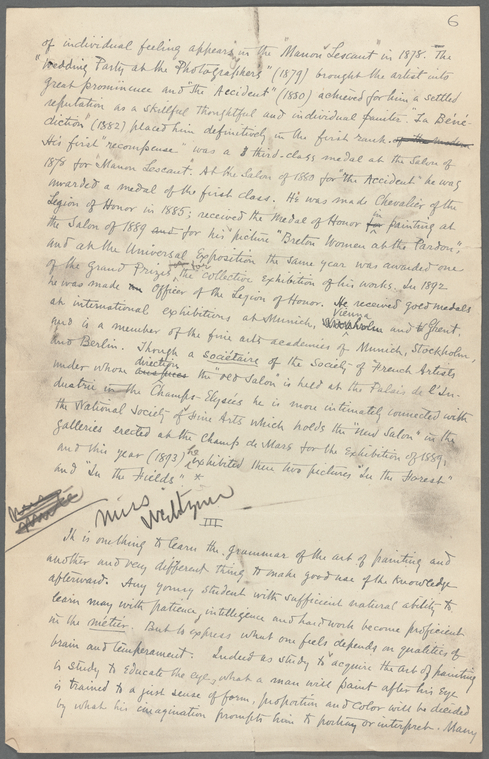 6
of individual feeling appears in the "Manon Lescaut" in 1878. The
"Wedding Party at the Photographers" (1879) brought the artist into
great prominence and "the Accident" (1880) achieved for him a settled
reputation as a skillful thoughtful and individual painter. La Béné-
diction" (1882) placed him definitively in the first rank. of the modern
His first "recompense" was a 3 third-class medal at the Salon of
1878 for "Manon Lescaut". At the Salon of 1880 for "the Accident" he was
awarded a medal of the first class. He was made Chevalier of the
Legion of Honor in 1885; received the Medal of Honor for in painting at
the Salon of 1889 and for his picture "Breton Women at the Pardon",
and at the Universal Exposition the same year was awarded one
of the Grand Prizes, the collective exhibition of his works. In 1892
he was made an Officer of the Legion of Honor. He received gold medals
at international exhibitions at Munich, Vienna Stockholm and Ghent,
and is a member of the fine arts academies of Munich, Stockholm,
and Berlin. Though a sociétaire of the Society of French Artists
under whose direction auspices the "old Salon" is held at the Palais de l'In-
dustrie in the Champs-Elysées he is more intimately connected with
the National Society of Fine Arts which holds the "New Salon" in the
galleries erected at the Champ de Mars for the Exhibition of 1889,
and this year (1893) he exhibited there two pictures "In the Forest"
and "In the Fields" *
Miss
III
It is one thing to learn the grammar of the art of painting and
another and very different thing to make good use of the knowledge
afterward. Any young student with sufficient natural ability to
learn may with patience, intelligence and hard work become proficient
in the métier. But to express what one feels depends on qualities of
brain and temperament. Indeed as study to acquire the art of painting
is study to educate the eye, what a man will paint after his eye
is trained to a just sense of form, proportion and color will be decided
by what his imagination prompts him to portray or interpret. Many